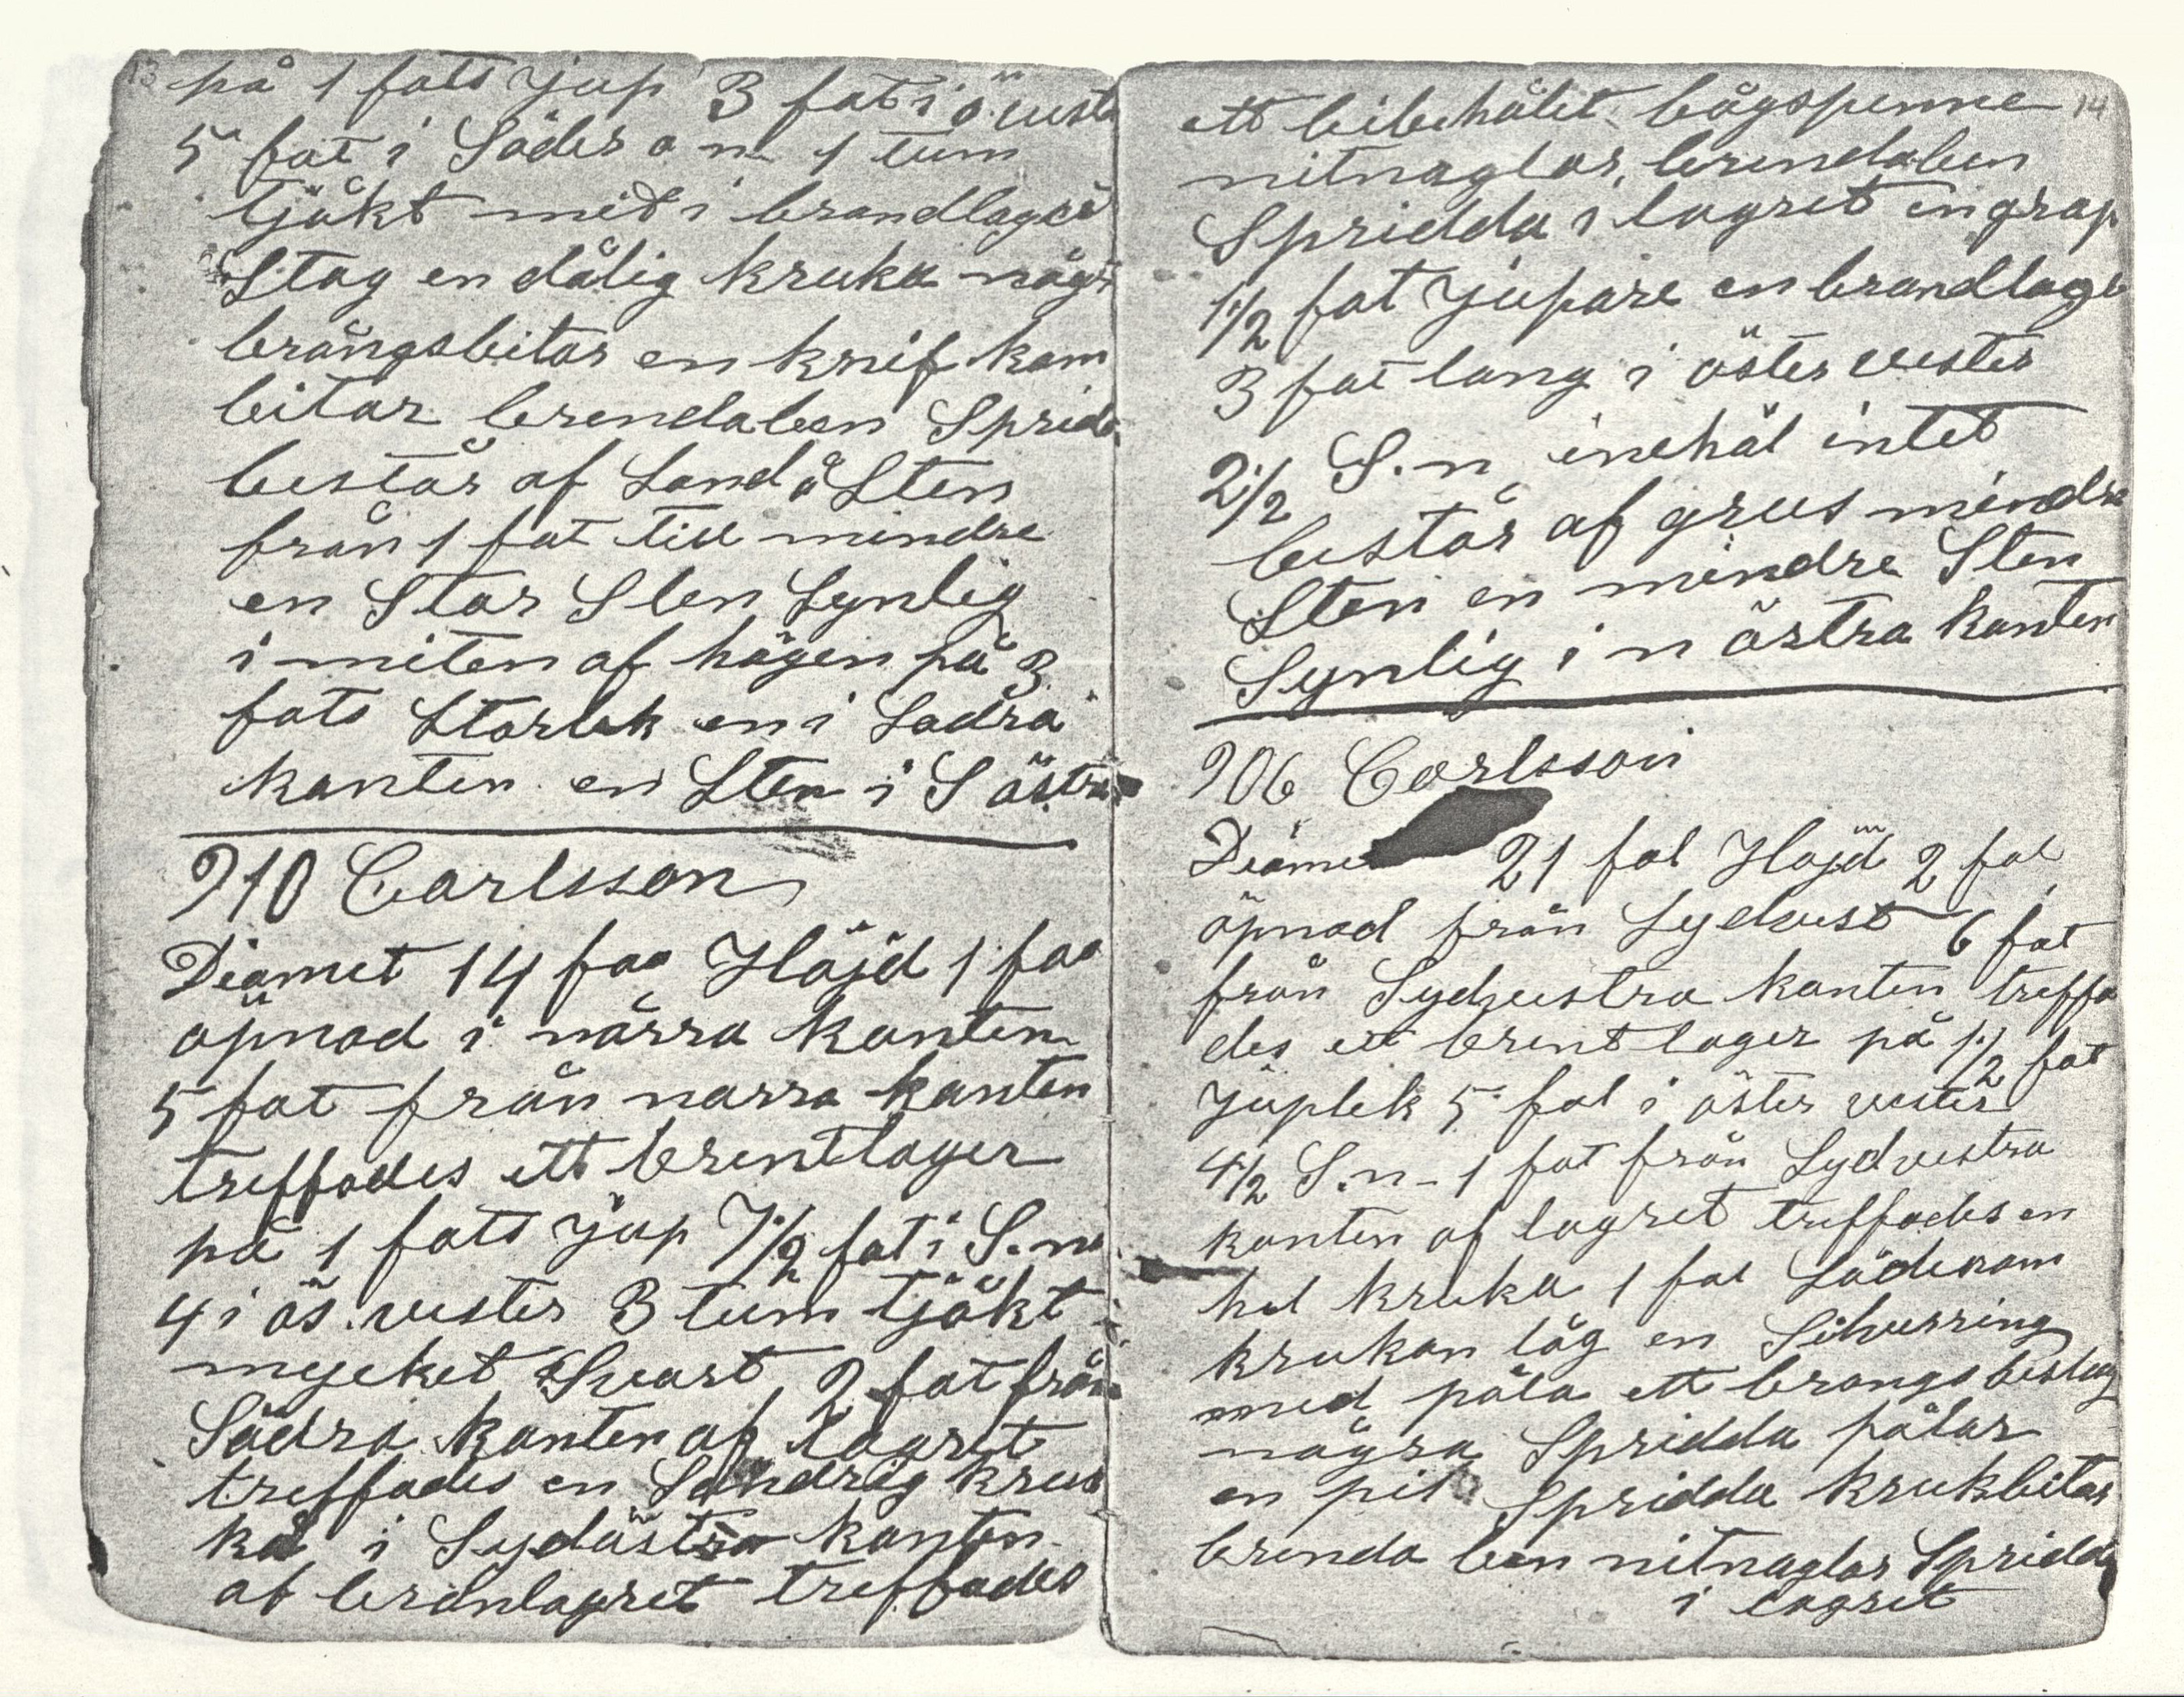 13
på 1 fots jup 3 fot i ö. vest
5 fot i Söder o n 1 tum
tjökt mit i brandlagrö
Stog en dålig kruka någr
brångsbitar en knif kam
bitar brendaben Sprid
består af Sand å Sten
från 1 fot till mindre
en Stor Sten Synlig
i miten af högen på 3
fots Storlek en i Södra
kanten en Sten i S östra
910 Carlsson
Diamet 14 fot Höjd 1 fot
öpnad i nörra kanten
5 fot från norra kanten
treffades ett brentlager
på 1 fots jup 7 1/2 fot i S. n
4 i ös. vester 3 tum tjökt
mycket Svart 2 fot från
Södra kanten af lagret
treffades en Söndrig kru
ka i Sydöstra kanten
af brenlagret treffades
14
ett bibehålit bögspenne
nitnaglar, brendaben
Spridda i lagret en grop
1 1/2 fot jupare en brandlage
3 fot long i öster vester
2 1/2 S. n inehöl intet
består af grus mindre
Sten en mindre Sten
Synlig i n östra kanten
906 Carlsson
Diame 21 fot Höjd 2 fot
öpnad från Sydvest 6 fot
från Sydvestra kanten treffa
des ett brent lager på 1 1/2 fot
juplek 5 fot i öster vester
4 1/2 S. n - 1 fot från Sydvestra
kanten af lagret treffades en
hel kruka 1 fot Söderom
krukan låg en Silverring
med påla ett brongsbeslag
några Spridda pålar
en pil Spridda krukbitar
brenda ben nitnaglar Spridd
i lagret